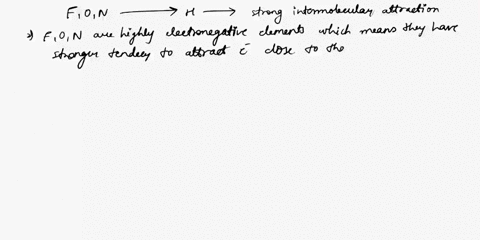 F, O, N ⟶ H ⟶ strong intermolecular attraction
⇒ F, O, N are highly electronegative elements which means they have
stronger tendecy to attract e⁻ close to the